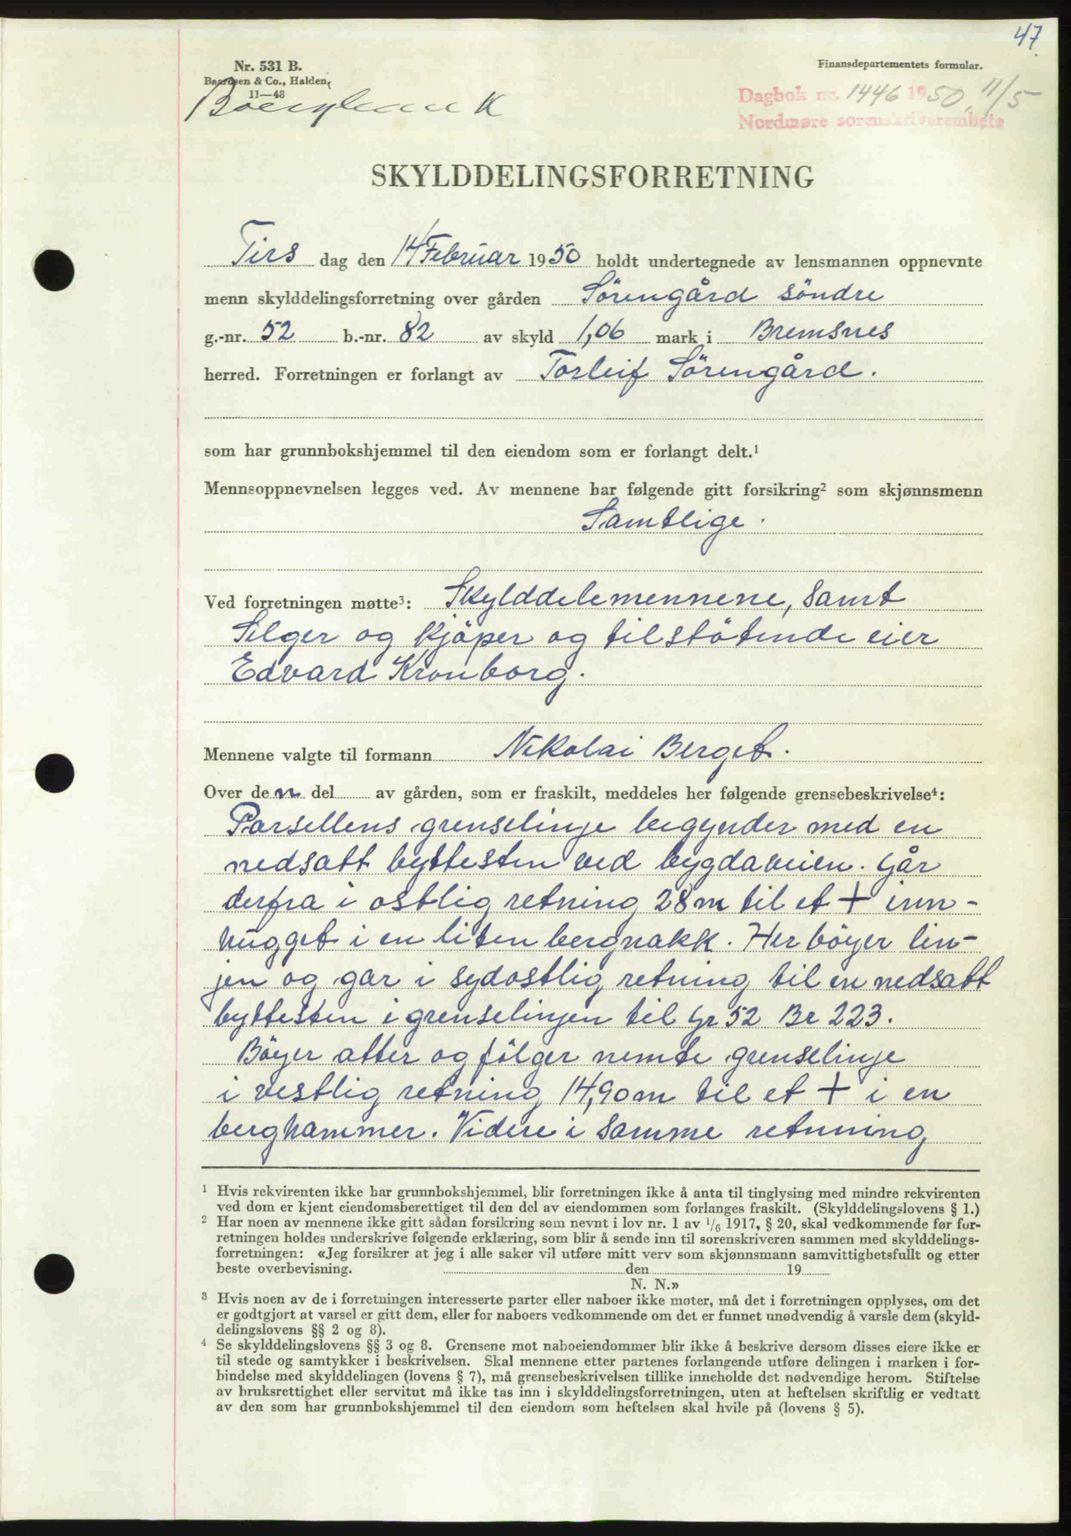 47.
Nr. 531 B.
Finansdepartementets formular.
Baardsen & Co., Halden,
11—48
Dagbok nr. 1446 1950, 11/5
Nordmøre sorenskriverembete
SKYLDDELINGSFORRETNING
Tirs dag den 14 Februar 1950 holdt undertegnede av lensmannen oppnevnte
menn skylddelingsforretning over gården Sörengård söndre
g.-nr. 52 b.-nr. 82 av skyld 1,06 mark i Bremsnes
herred. Forretningen er forlangt av Torleif Sörengård.
som har grunnbokshjemmel til den eiendom som er forlangt delt.¹
Mennsoppnevnelsen legges ved. Av mennene har følgende gitt forsikring² som skjønnsmenn
Samtlige.
Ved forretningen møtte³: Skylddelemennene, samt
Selger og Kjöper og tilstötende eier
Edvard Kronborg.
Mennene valgte til formann Nikolai Berget.
Over den del av gården, som er fraskilt, meddeles her følgende grensebeskrivelse⁴:
Parsellens grenselinje begynder med en
nedsatt byttesten ved bygdaveien. Går
derfra i ostlig retning 28 m til et + inn-
hugget i en liten bergnakk. Her böyer lin-
jen og gar i sydostlig retning til en nedsatt
byttesten i grenselinjen til Gr 52 Br 223.
Böyer atter og fölger nemte grenselinje
i vestlig retning 14,90 m til et + i en
berghammer. Videre i samme retnning
¹ Hvis rekvirenten ikke har grunnbokshjemmel, blir forretningen ikke å anta til tinglysing med mindre rekvirenten
ved dom er kjent eiendomsberettiget til den del av eiendommen som forlanges fraskilt. (Skylddelingslovens § 1.)
² Har noen av mennene ikke gitt sådan forsikring som nevnt i lov nr. 1 av 1/6 1917, § 20, skal vedkommende før for-
retningen holdes underskrive følgende erklæring, som blir å sende inn til sorenskriveren sammen med skylddelings-
forretningen: «Jeg forsikrer at jeg i alle saker vil utføre mitt verv som skjønnsmann samvittighetsfullt og etter
beste overbevisning. den 19
N. N.»
³ Hvis noen av de i forretningen interesserte parter eller naboer ikke møter, må det i forretningen opplyses, om det
er godtgjort at varsel er gitt dem, eller for naboers vedkommende om det er funnet unødvendig å varsle dem (skyld-
delingslovens §§ 2 og 8).
⁴ Se skylddelingslovens §§ 3 og 8. Grensene mot naboeiendommer blir ikke å beskrive dersom disses eiere ikke er
til stede og samtykker i beskrivelsen. Skal mennene etter partenes forlangende utføre delingen i marken i for-
bindelse med skylddelingen (lovens § 7), må grensebeskrivelsen tillike inneholde det nødvendige herom. Stiftelse
av bruksrettighet eller servitut må ikke tas inn i skylddelingsforretningen, uten at heftelsen skriftlig er vedtatt
av den som har grunnbokshjemmel til den eiendom som heftelsen skal hvile på (lovens § 5).